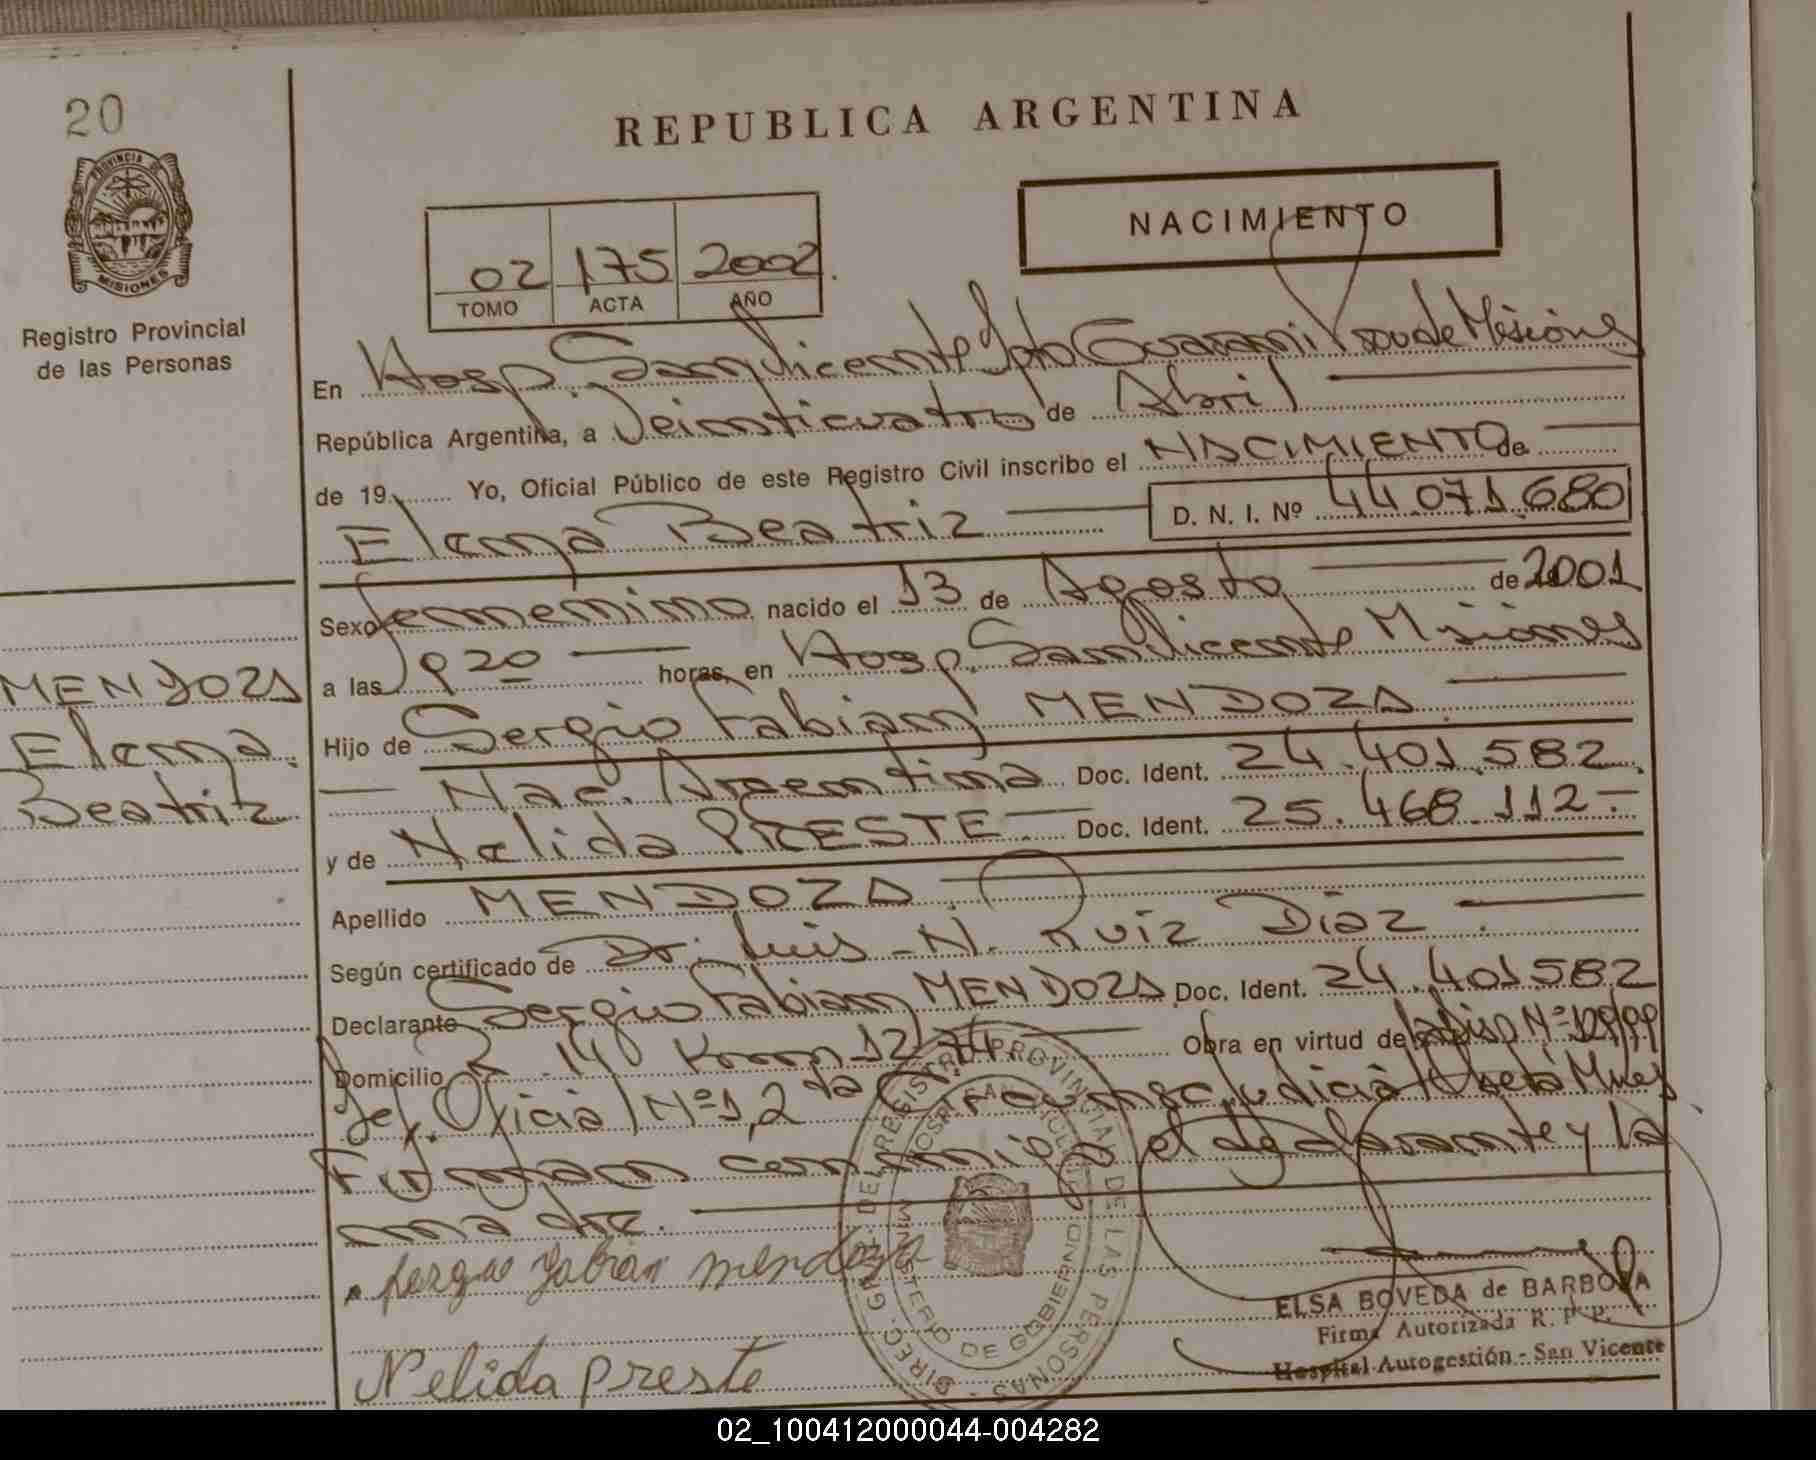 20
PROVINCIA DE
MISIONES
Registro Provincial
de las Personas
REPUBLICA ARGENTINA
NACIMIENTO
02 175 2002
TOMO ACTA AÑO
En Hosp. San Vicente Dpto Guarani Prov de Misiones
República Argentina, a Veinticuatro de Abril
de 19 Yo, Oficial Público de este Registro Civil inscribo el NACIMIENTO de
Elena Beatriz D. N. I. Nº 44.071.680
Sexo femenino nacido el 13 de Agosto de 2001
a las 9 20 horas, en Hosp. San Vicente Misiones
Hijo de Sergio Fabian MENDOZA
Nac. Argentina Doc. Ident. 24.401.582
y de Nelida PRESTE Doc. Ident. 25.468.112
Apellido MENDOZA
Según certificado de Dr. Luis N. Ruiz Diaz
Declarante Sergio Fabian MENDOZA Doc. Ident. 24.401582
Domicilio R. 14 Km 1274 Obra en virtud de Nº 129/99
Def. Oficial Nº 1, 2da Judicial Oberá Mnes
Firman conmigo el declarante y la
madre.
Sergio Fabian Mendoza
Nelida Preste
MENDOZA
Elena
Beatriz
DIREC. GRAL. DEL REGISTRO PROVINCIAL DE LAS PERSONAS
HOSP. SAN VICENTE
MINISTERIO DE GOBIERNO
ELSA BOVEDA de BARBOZA
Firma Autorizada R. P. P.
Hospital Autogestión - San Vicente
02_100412000044-004282